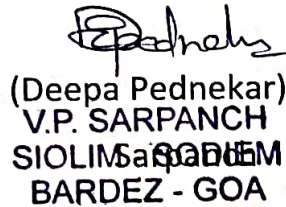 (Deepa Pednekar)
V.P. SARPANCH
SIOLIM SODIEM
Sarpanch
BARDEZ - GOA